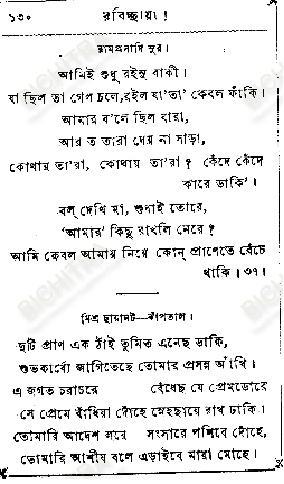 ১৩০ রবিচ্ছায়া।
রামপ্রসাদি সুর।
আমিই শুধু রইনু বাকী।
যা ছিল তা গেল চলে, রইল যা' তা' কেবল ফাঁকি।
আমার ব'লে ছিল যারা,
আর ত তারা দেয় না সাড়া,
কোথায় তা'রা, কোথায় তা'রা? কেঁদে কেঁদে
কারে ডাকি'।
বল্ দেখি মা, শুধাই তোরে,
'আমার' কিছু রাখলি নেরে?
আমি কেবল আমায় নিয়ে কোন্ প্রাণেতে বেঁচে
থাকি। ৩৭।
মিশ্র ছায়ানট—ঝাঁপতাল।
দুটি প্রাণ এক ঠাঁই তুমিত এনেছ ডাকি,
শুভকার্য্যে জাগিতেছে তোমার প্রসন্ন আঁখি।
এ জগত চরাচরে বেঁধেছ যে প্রেমডোরে
সে প্রেমে বাঁধিয়া দোঁহে স্নেহছায়ে রাখ ঢাকি।
তোমারি আদেশ লয়ে সংসারে পশিবে দোঁহে,
তোমারি আশীষ বলে এড়াইবে মায়া মোহে।
BICHITRA